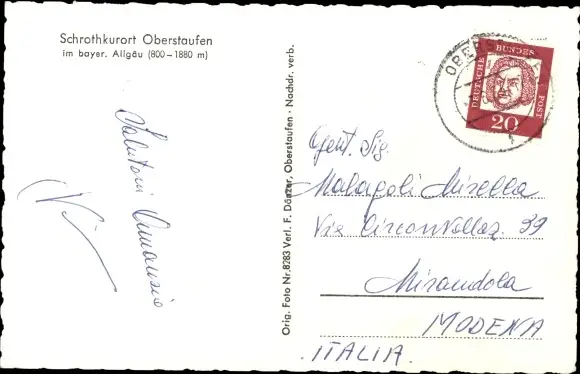 Schrothkurort Oberstaufen
im bayer. Allgäu (800–1880 m)
Orig. Foto Nr. 8283 Verl. F. Dänzer, Oberstaufen · Nachdr. verb.
DEUTSCHE BUNDES POST
20
Gent. Sig.
Malagoli Mirella
Via Circonvallaz. 39
Mirandola
MODENA
.ITALIA.
Salutoni